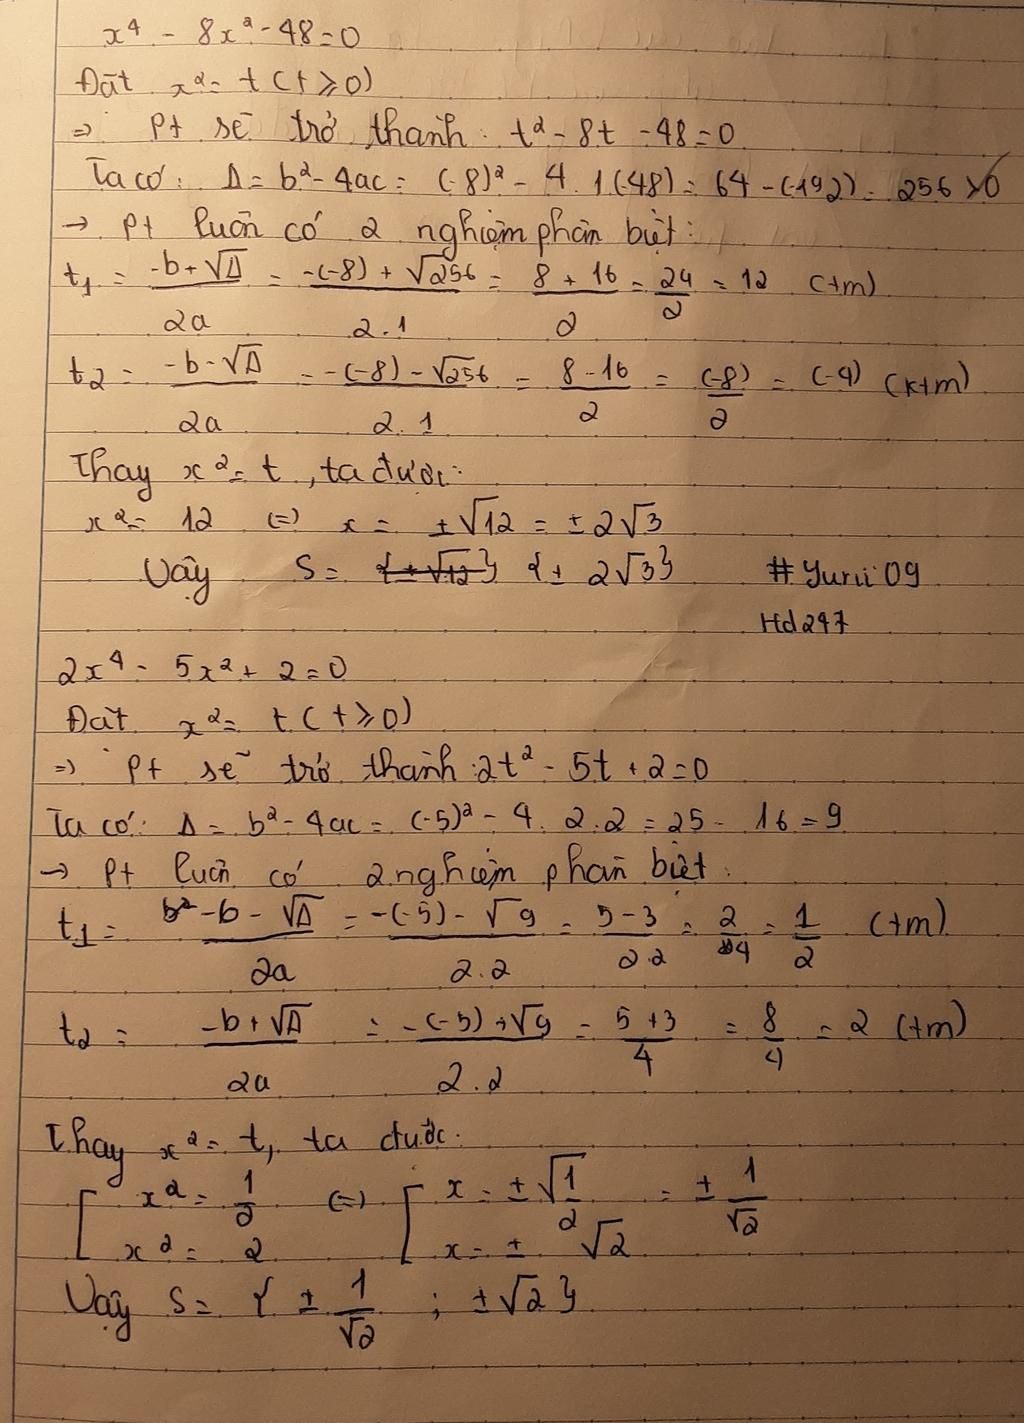 x⁴ - 8x² - 48 = 0
Đặt x² = t (t ≥ 0)
=> Pt sẽ trở thành: t² - 8t - 48 = 0
Ta có: Δ = b² - 4ac = (-8)² - 4.1(-48) = 64 - (-192) = 256 > 0
→ Pt luôn có 2 nghiệm phân biệt:
t₁ = (-b + √Δ)/2a = (-(-8) + √256)/2.1 = (8 + 16)/2 = 24/2 = 12 (tm)
t₂ = (-b - √Δ)/2a = (-(-8) - √256)/2.1 = (8 - 16)/2 = (-8)/2 = (-4) (ktm)
Thay x² = t, ta được:
x² = 12 (=) x = ±√12 = ±2√3
Vậy S = {±√12} {± 2√3} #Yurii09
Hd247
2x⁴ - 5x² + 2 = 0
Đặt x² = t (t ≥ 0)
=> Pt sẽ trở thành: 2t² - 5t + 2 = 0
Ta có: Δ = b² - 4ac = (-5)² - 4.2.2 = 25 - 16 = 9
→ Pt luôn có 2 nghiệm phân biệt:
t₁ = b² (-b - √Δ)/2a = (-(-5) - √9)/2.2 = (5 - 3)/2.2 = 2/4 = 1/2 (tm)
t₂ = (-b + √Δ)/2a = (-(-5) + √9)/2.2 = (5 + 3)/4 = 8/4 = 2 (tm)
Thay x² = t, ta được:
[ x² = 1/2 (=) [ x = ±√1/2 = ± 1/√2
x² = 2 x = ± √2
Vậy S = { ± 1/√2 ; ±√2 }